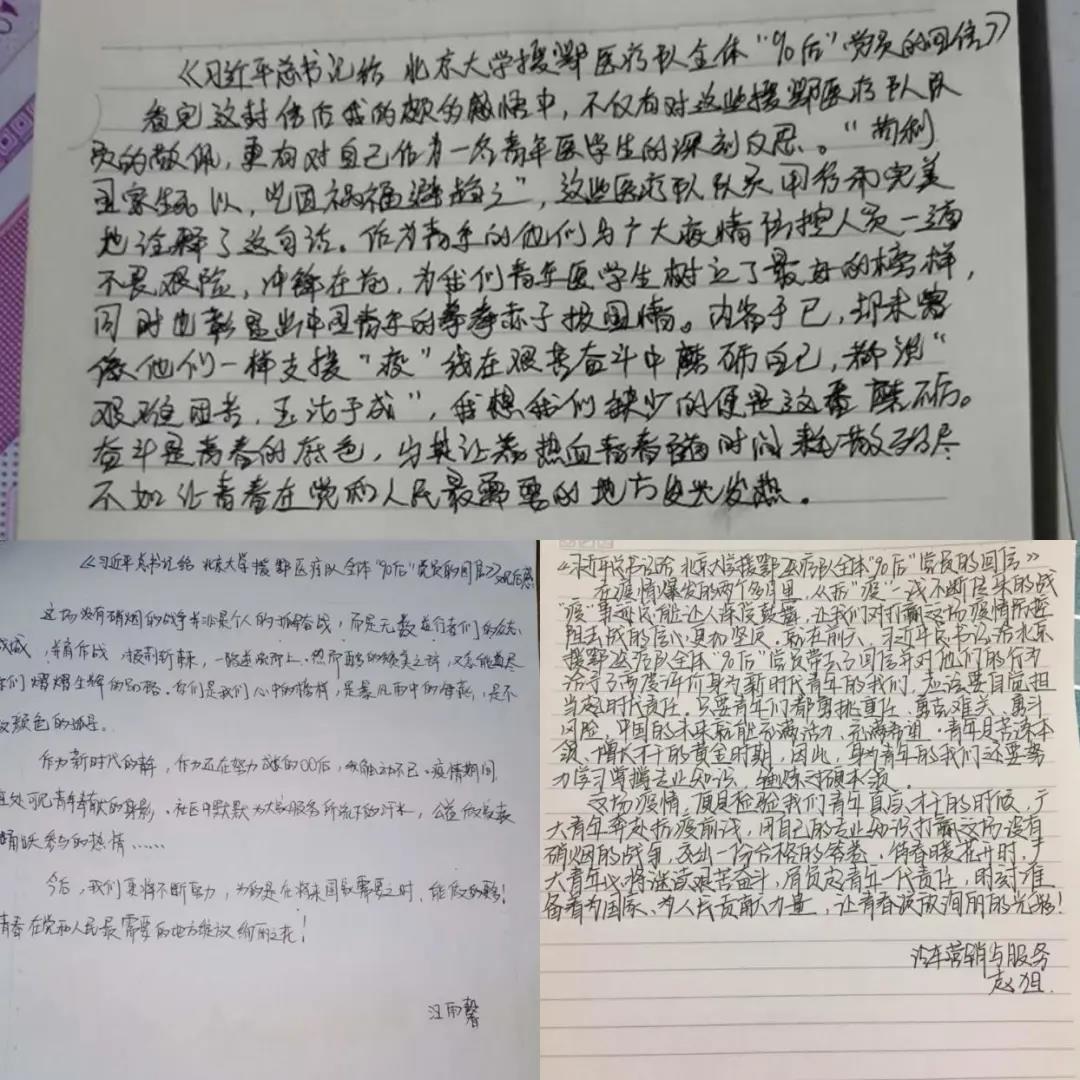 《习近平总书记给北京大学援鄂医疗队全体“90后”党员的回信》
看完这封信后我的颇多感悟中，不仅有对这些援鄂医疗队队
员的敬佩，更有对自己作为一名青年医学生的深刻反思。“苟利
国家生死以，岂因祸福避趋之”，这些医疗队队员用行动完美
地诠释了这句话。作为青年的他们与广大疫情防控人员一道
不畏艰险，冲锋在前，为我们青年医学生树立了最好的榜样，
同时也彰显出中国青年的拳拳赤子报国情。内省于已，却未曾
像他们一样支援“疫”线在艰苦奋斗中磨砺自己，都说“
艰难困苦，玉汝于成”，我想我们缺少的便是这番磨砺。
奋斗是青春的底色，与其让着热血青春随时间耗散殆尽
不如让青春在党和人民最需要的地方发光发热。
《习近平总书记给北京大学援鄂医疗队全体“90后”党员的回信》观后感
这场没有硝烟的战争并非是个人的孤军奋战，而是无数逆行者们的
，并肩作战，披荆斩棘，一路逆流而上。然而
们熠熠生辉的 。你们是我们心中的榜样，是暴风雨中的海燕，是不
颜色的 。
作为新时代的青年，作为还在努力 的00后，我触动不已。疫情期间
处处可见青年奉献的身影。社区中默默为大家服务所流下的汗水，公益
踊跃参与的热情……
今后，我们更将不断努力，为的是在将来国家需要之时，能 ！
青春在党和人民最需要的地方绽放绚丽之花！
汪雨馨
《习近平总书记给北京大学援鄂医疗队全体“90后”党员的回信》
在疫情爆发的两个多月里，从抗“疫”一线不断传来的战
“疫”事迹总能让人深受鼓舞，让我们对打赢这场疫情防控
阻击战的信心更加坚定。 ，习近平总书记给北京
援鄂医疗队全体“90后”党员带去了回信并对他们的行为
给予了高度评价身为新时代青年的我们，应该要自觉担
当起时代责任。只要青年们都勇挑重任、勇克难关、勇斗
风险，中国的未来就能充满活力、充满希望。青年是苦练本
领、增长才干的黄金时期，因此，身为青年的我们还要努
力学习掌握专业知识，锤炼过硬本领。
这场疫情，便是检验我们青年真与才干的时候，广
大青年奔赴抗疫前线，用自己的专业知识打赢这场没有
硝烟的战争，交出一份合格的答卷。待春暖花开时，广
大青年必将继续艰苦奋斗，肩负起青年一代责任，时刻准
备着为国家、为人民贡献力量，让青春绽放绚丽的光彩！
汽车营销与服务
赵 旭